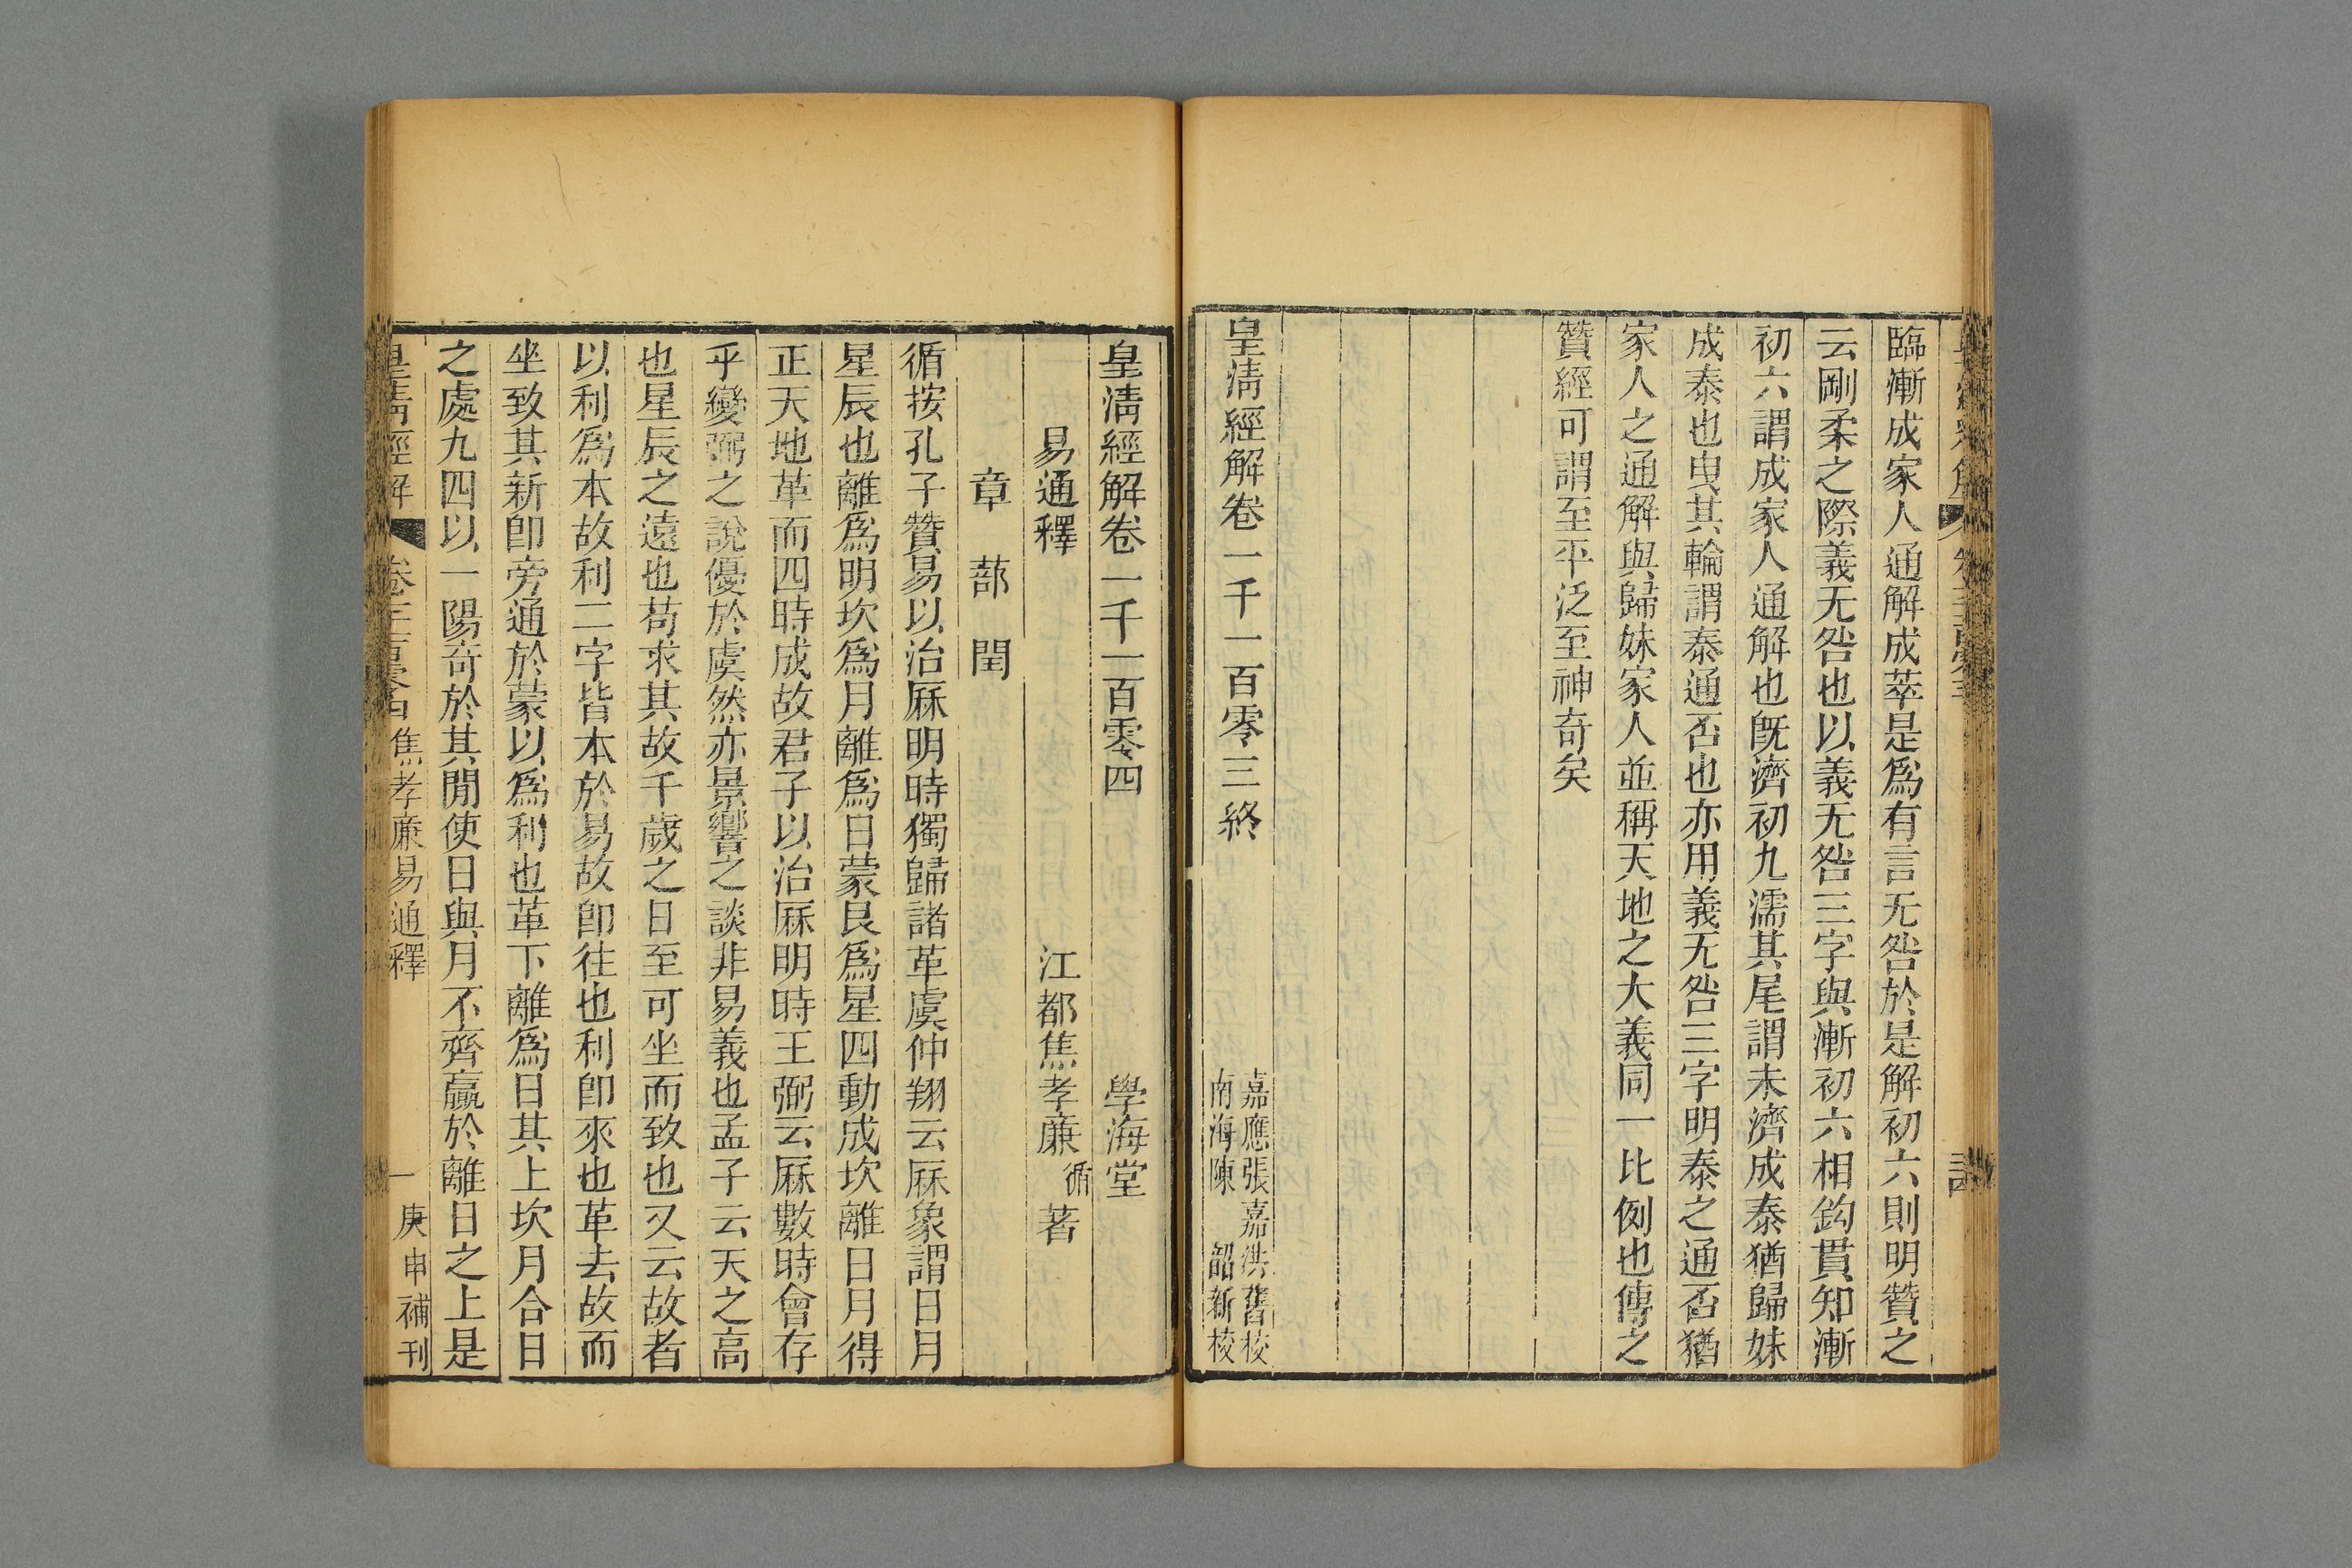 臨漸成家人通解成萃是爲有言无咎於是解初六則明贊之
云剛柔之際義无咎也以義无咎三字與漸初六相鈎貫知漸
初六謂成家人通解也旣濟初九濡其尾謂未濟成泰猶歸妹
成泰也曳其輪謂泰通否也亦用義无咎三字明泰之通否猶
家人之通解與歸妹家人並稱天地之大義同一比例也傳之
贊經可謂至平泛至神奇矣
嘉應張嘉洪舊校
南海陳 韶新校
皇淸經解卷一千一百零三終
皇淸經解卷一千一百零四 學海堂
易通釋 江都焦孝廉循著
章 蔀 閏
循按孔子贊易以治厤明時獨歸諸革虞仲翔云厤象謂日月
星辰也離爲明坎爲月離爲日蒙艮爲星四動成坎離日月得
正天地革而四時成故君子以治厤明時王弼云厤數時會存
乎變弼之說優於虞然亦景響之談非易義也孟子云天之高
也星辰之遠也苟求其故千歲之日至可坐而致也又云故者
以利爲本故利二字皆本於易故卽往也利卽來也革去故而
坐致其新卽旁通於蒙以爲利也革下離爲日其上坎月合日
之處九四以一陽奇於其閒使日與月不齊贏於離日之上是
皇淸經解 卷一千一百零四 焦孝廉易通釋 一 庚申補刊